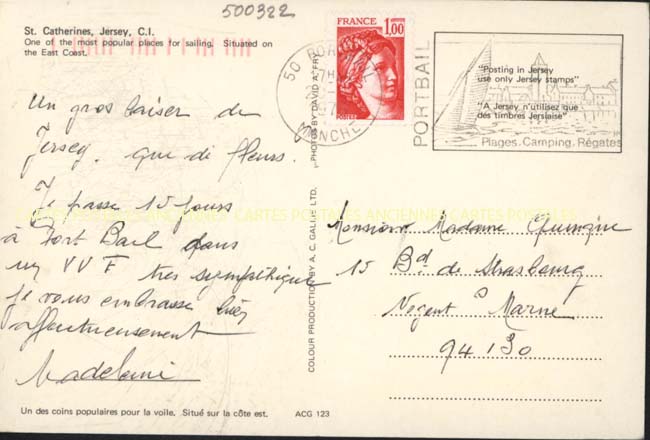 500322
St. Catherines, Jersey, C.I.
One of the most popular places for sailing. Situated on
the East Coast.
FRANCE
1,00
POSTES
50
MANCHE
PORTBAIL
"Posting in Jersey
use only Jersey stamps"
"A Jersey n'utilisez que
des timbres Jersiaise"
Plages. Camping. Régates
Un gros baiser de
Jersey. que de fleurs.
Je passe 15 jours
à Port Bail dans
un VVF très sympathique
je vous embrasse bien
affectueusement
Madeleine
COLOUR PRODUCTION BY A. C. GALLIE LTD.
PHOTOS BY DAVID A. FRY
CARTES POSTALES ANCIENNES CARTES POSTALES ANCIENNES CARTES POSTALES
Monsieur Madame
15 Bd de Strasbourg
Nogent s Marne
94130
Un des coins populaires pour la voile. Situé sur la côte est.
ACG 123